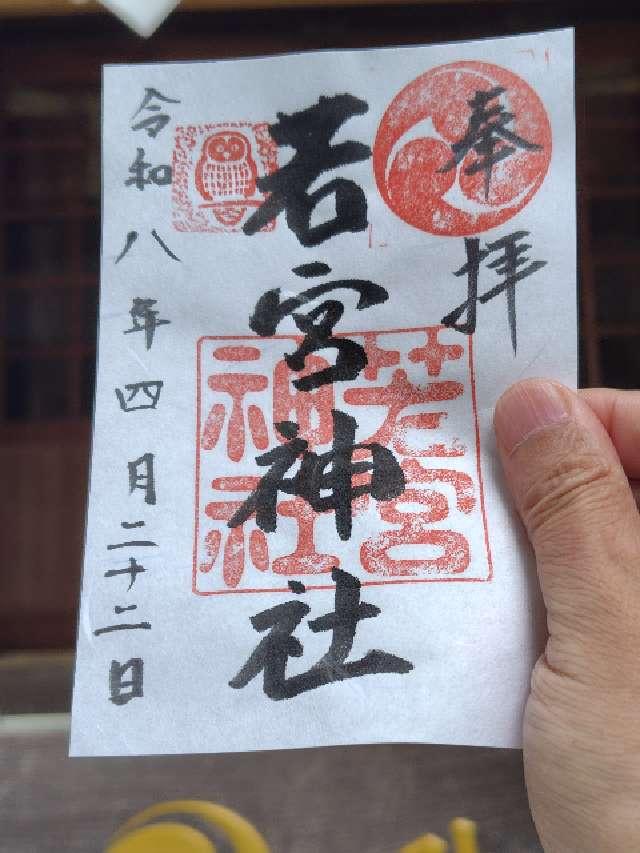 奉拝
若宮神社
若宮神社
令和八年四月二十二日